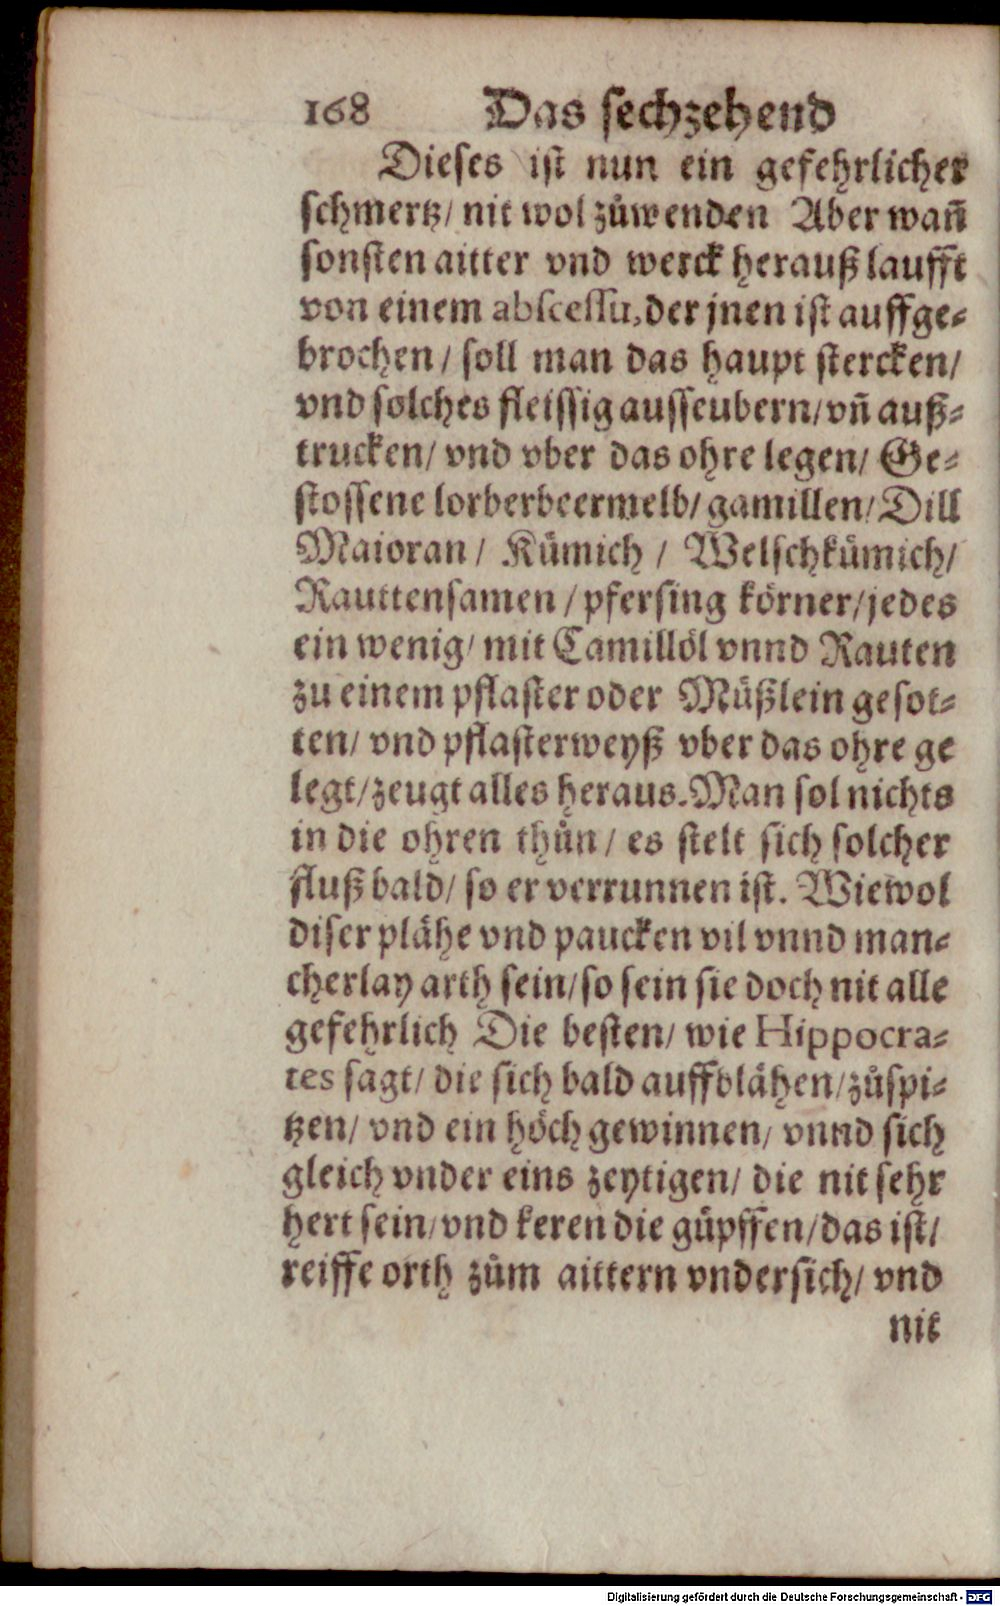 168 Das sechzehend
Dieses ist nun ein gefehrlicher
schmertz/ nit wol zůwenden Aber wañ
sonsten aitter vnd werck herauß laufft
von einem abscessu, der jnen ist auffge-
brochen/ soll man das haupt stercken/
vnd solches fleissig ausseubern/ vñ auß-
trucken/ vnd vber das ohre legen/ Ge-
stossene lorberbeermelb/ gamillen/ Dill
Maioran/ Kümich/ Welschkümich/
Rauttensamen/ pfersing körner/ jedes
ein wenig/ mit Camillöl vnnd Rauten
zu einem pflaster oder Müßlein gesot-
ten/ vnd pflasterweyß vber das ohre ge
legt/ zeugt alles heraus. Man sol nichts
in die ohren thůn/ es stelt sich solcher
fluß bald/ so er verrunnen ist. Wiewol
diser plähe vnd paucken vil vnnd man-
cherlay arth sein/ so sein sie doch nit alle
gefehrlich Die besten/ wie Hippocra-
tes sagt/ die sich bald auffblähen/ zůspi-
tzen/ vnd ein höch gewinnen/ vnnd sich
gleich vnder eins zeytigen/ die nit sehr
hert sein/ vnd keren die güpffen/ das ist/
reiffe orth zům aittern vndersich/ vnd
nit
Digitalisierung gefördert durch die Deutsche Forschungsgemeinschaft - DFG